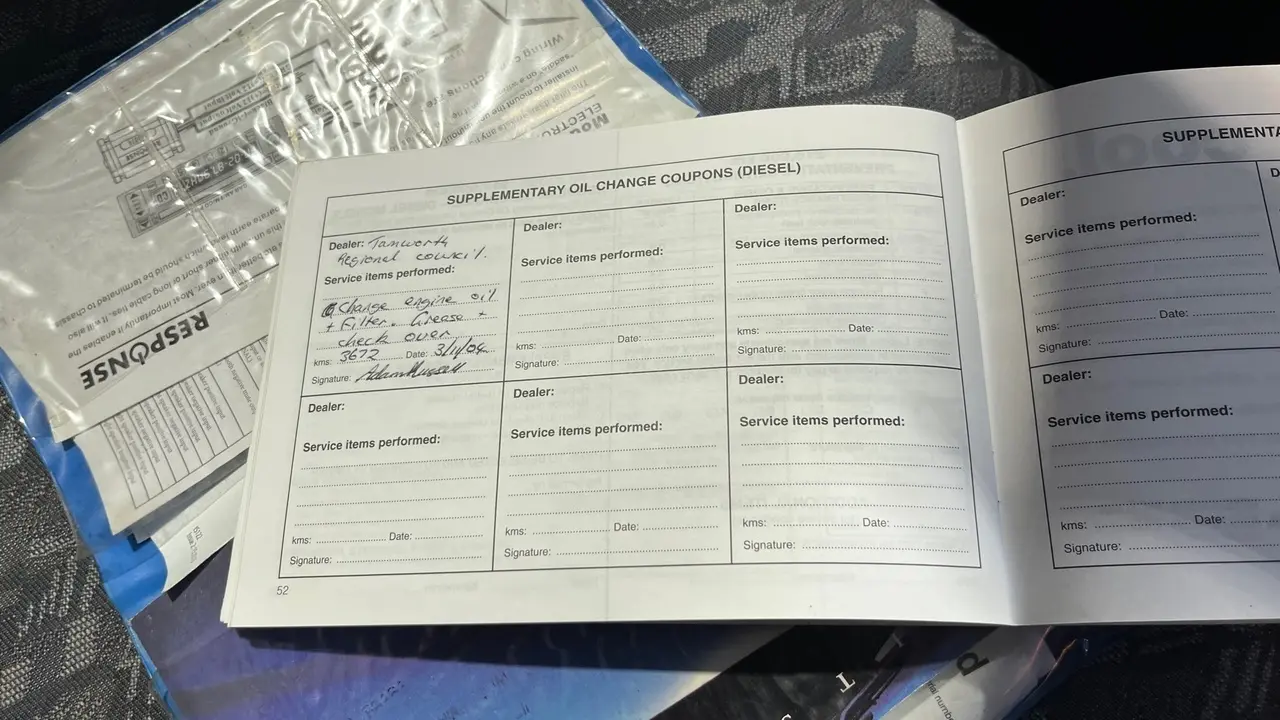 SUPPLEMENTARY OIL CHANGE COUPONS (DIESEL)
Dealer: Tamworth
Regional council.
Service items performed:
Change engine oil
+ Filter. Grease +
check over
kms: 3672 Date: 3/11/04
Signature: Adam Mussell
Dealer:
Service items performed:
kms: Date:
Signature:
Dealer:
Service items performed:
kms: Date:
Signature:
Dealer:
Service items performed:
kms: Date:
Signature:
Dealer:
Service items performed:
kms: Date:
Signature:
Dealer:
Service items performed:
kms: Date:
Signature:
52
SUPPLEMENTA
Dealer:
Service items performed:
kms: Date:
Signature:
Dealer:
Service items performed:
kms: Date:
Signature:
RESPONSE